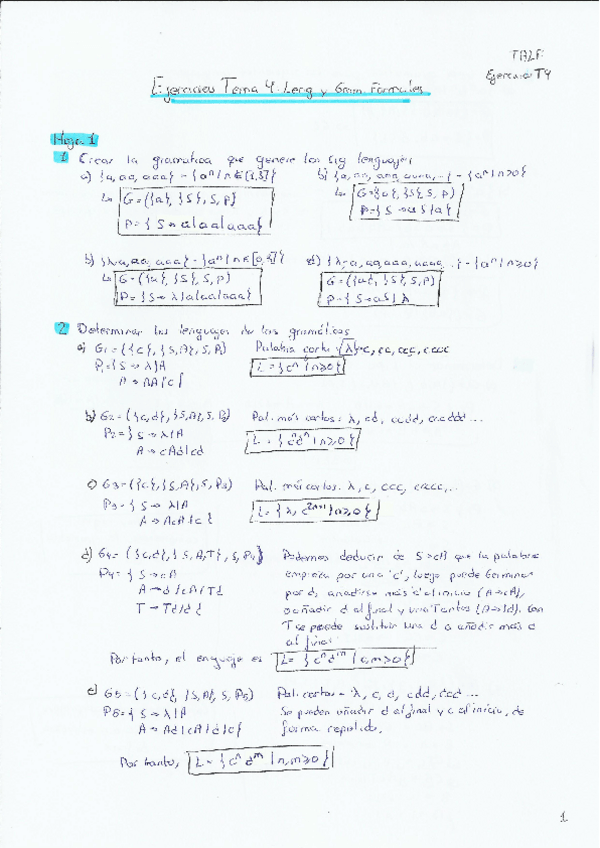 TALF
Ejercicios T4
Ejercicios Tema 4: Leng y Gram. Formales
Hoja 1
1 Crear la gramática que genere los sig lenguajes
a) {a, aa, aaa} = {aⁿ | n ∈ [1,3]}
↳ G = ({a}, {S}, S, P)
P = { S → a|aa|aaa}
b) {a, aa, aaa, aaaa, ..} = {aⁿ | n>0}
↳ G = ({a}, {S}, S, P)
P = { S → aS|a}
b) {λ, a, aa, aaa} = {aⁿ | n ∈ [0,3]}
↳ G = ({a}, {S}, S, P)
P = { S → λ|a|aa|aaa}
d) {λ, a, aa, aaa, aaaa, ..} = {aⁿ | n≥0}
G = ({a}, {S}, S, P)
P = { S → aS| λ
2 Determinar los lenguajes de las gramáticas
a) G₁ = ({c}, {S,A}, S, P₁)
P₁ = { S → λ|A
A → AA|c}
Palabra corta: λ, c, cc, ccc, cccc
L = {cⁿ | n≥0}
b) G₂ = ({c,d}, {S,A}, S, P₂)
P₂ = { S → λ|A
A → cAd|cd
Pal. más cortas: λ, cd, ccdd, cccddd ...
L = {cⁿdⁿ | n≥0}
c) G₃ = ({c}, {S,A}, S, P₃)
P₃ = { S → λ|A
A → AcA|c}
Pal. más cortas: λ, c, ccc, ccccc, ...
L = {λ, c²ⁿ⁺¹ | n≥0}
d) G₄ = ({c,d}, {S,A,T}, S, P₄)
P₄ = { S → cA
A → d|cA|Td
T → Td|d}
Podemos deducir de S→cA que la palabra
empieza por una 'c', luego puede terminar
por d, añadirse más c al inicio (A→cA),
o añadir d al final y una T antes (A→Td). Con
T se puede sustituir una d o añadir más d
al final.
Por tanto, el lenguaje es L = {cⁿdᵐ | n,m>0}
e) G₅ = ({c,d}, {S,A}, S, P₅)
P₅ = { S → λ|A
A → Ad|cA|d|c}
Pal. cortas = λ, c, d, cdd, ccd ...
Se pueden añadir d al final y c al inicio, de
forma repetida.
Por tanto, L = {cⁿ dᵐ | n,m≥0}
1